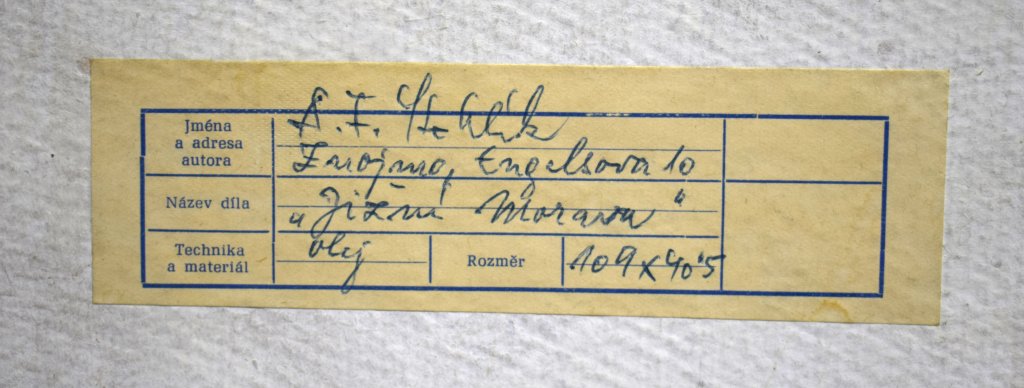 Jména
a adresa
autora
A. F. Stehlík
Znojmo, Engelsova 10
Název díla
„Jižní Morava"
Technika
a materiál
olej
Rozměr
109 x 90'5